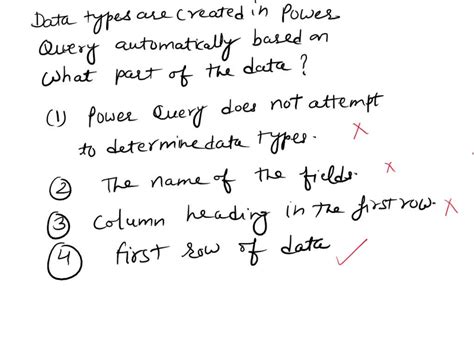 Data types are created in Power
Query automatically based on
what part of the data?
(1) Power Query does not attempt
to determine data types.
(2) The name of the fields.
(3) Column heading in the first row.
(4) first row of data